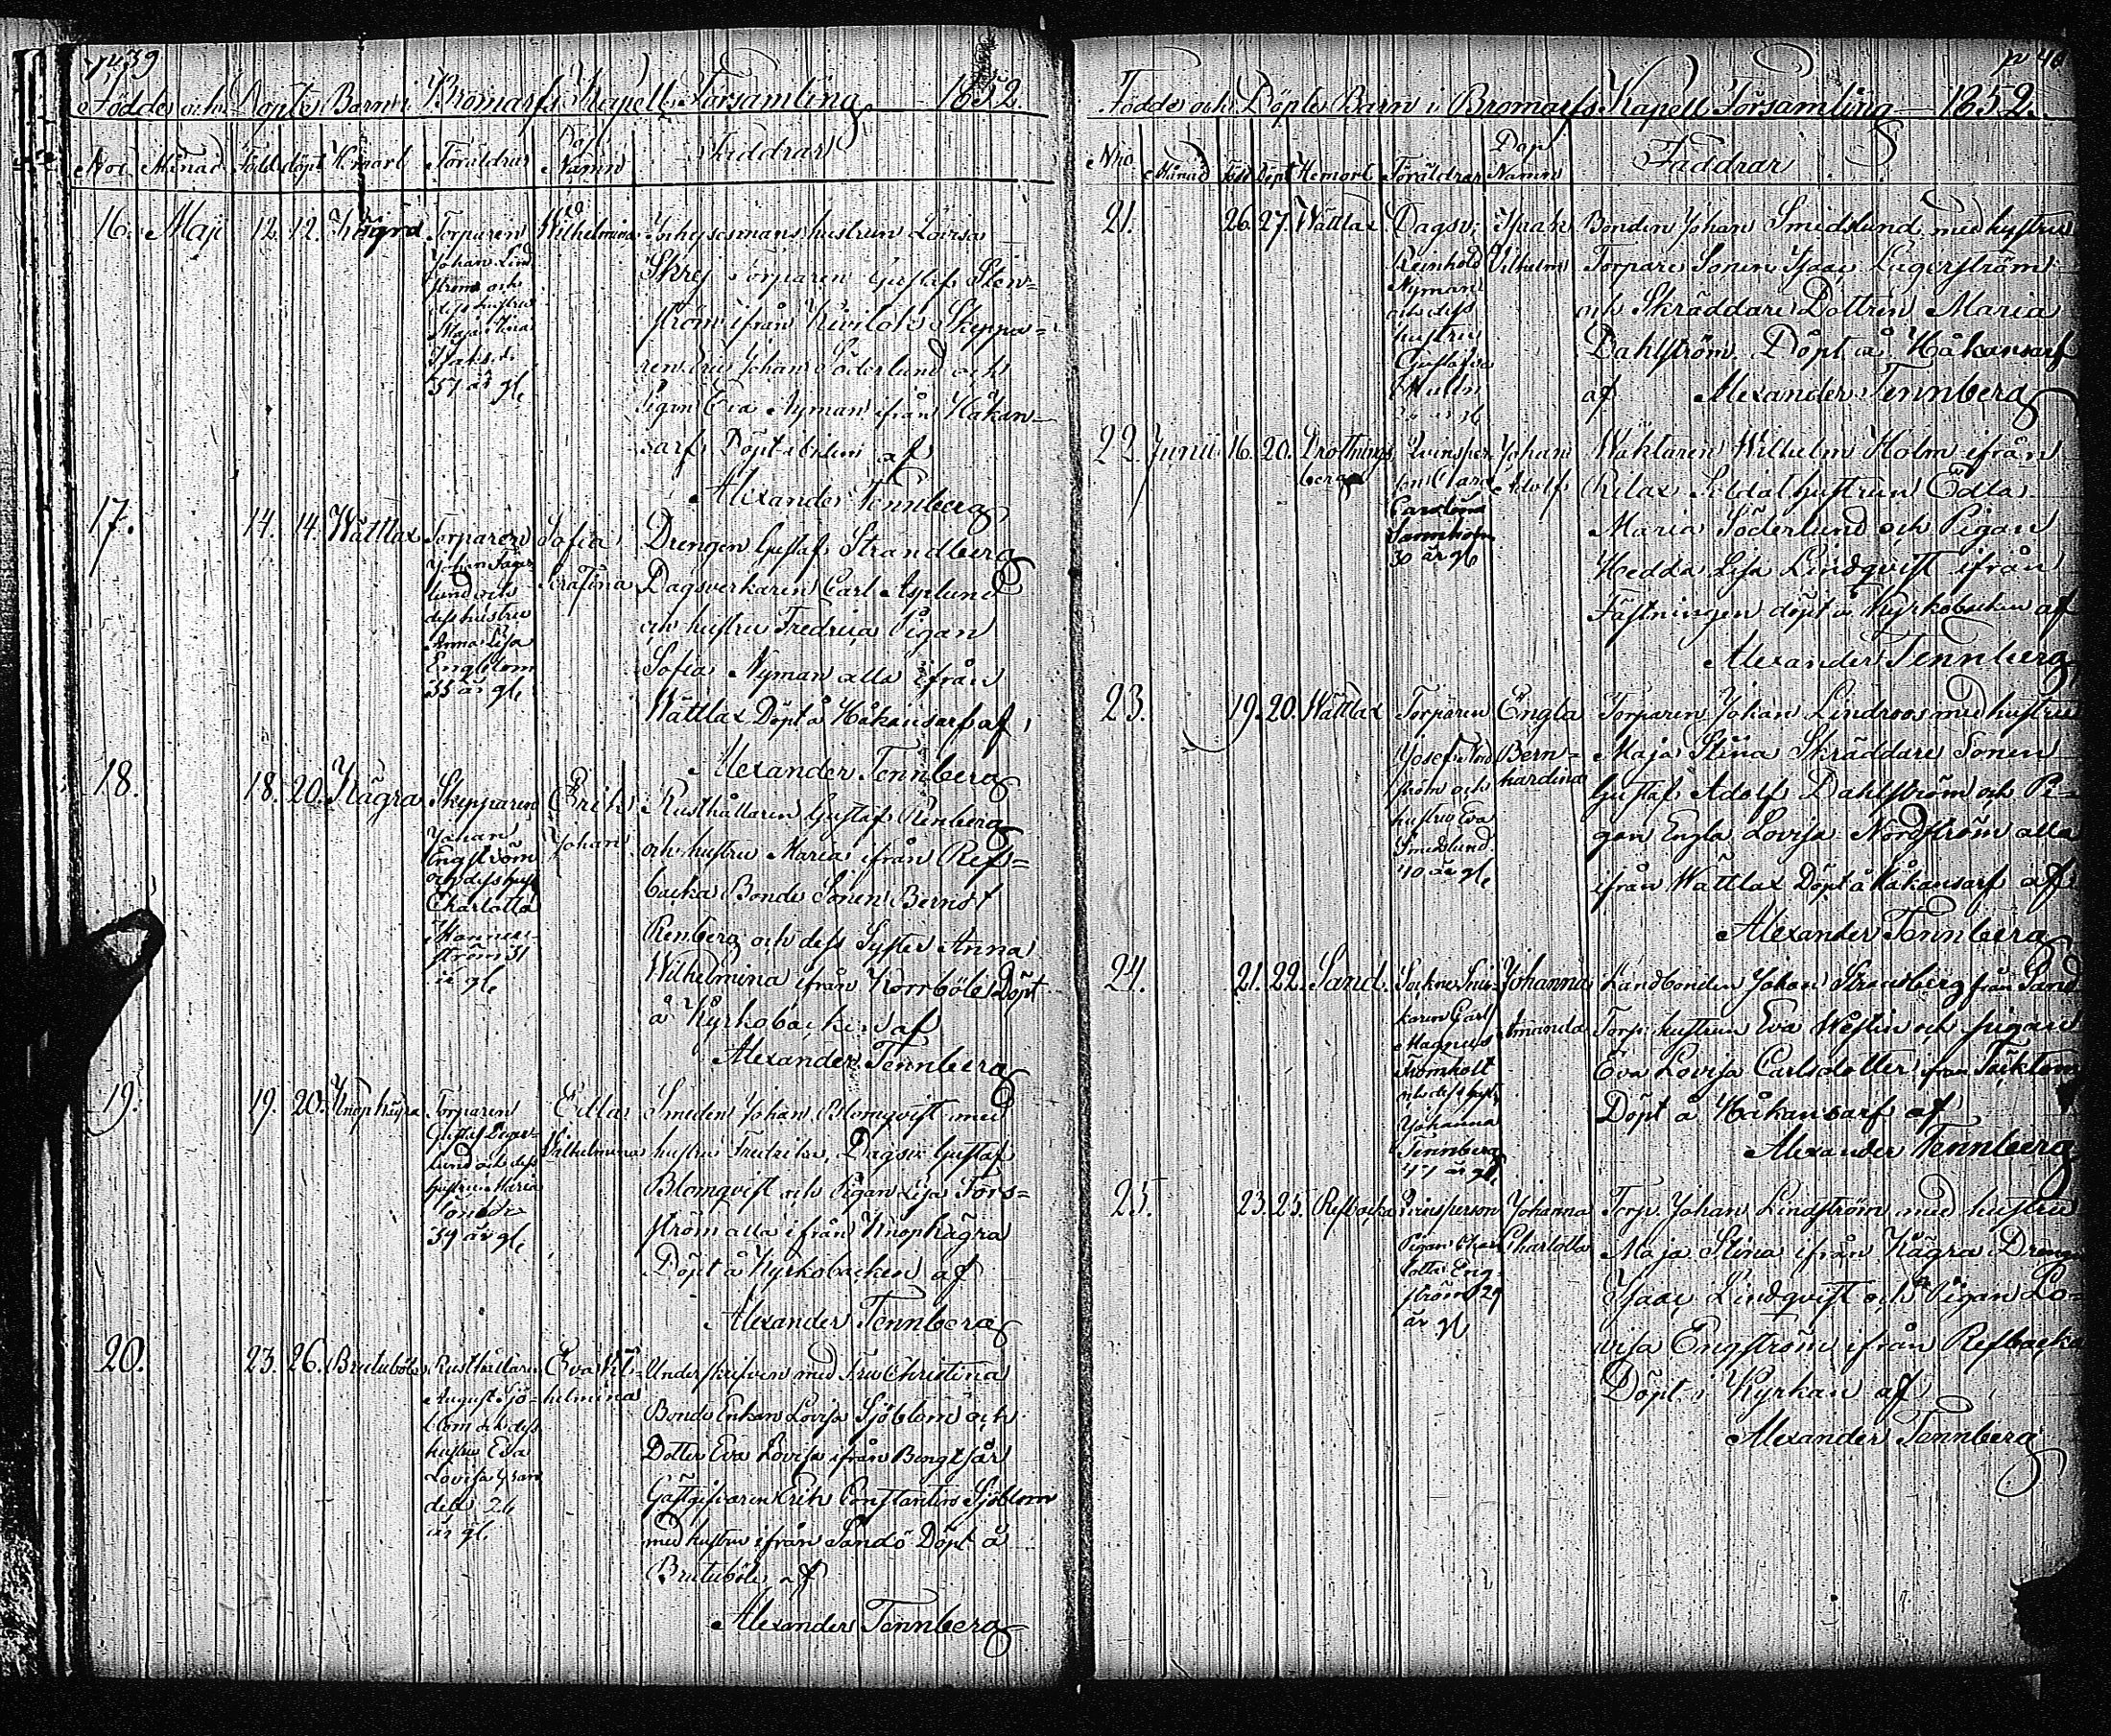 p. 39
Födde och Döpte Barn i Bromarfs Kapell Församling 1852
Nro Månad Född döpt Hemort Föräldrar Dop Namn Faddrar
16. Maji 12. 12. Kägra Torparen Johan Lindström och dess hustru Maja Stina 37 år gl. Wilhelmina Inhysesmans hustrun Lovisa
Skrej Torparen Gustaf Sten=
ström ifrån Skeppa=
ren Johan Söderlund och
Pigan Eva Nyman ifrån Håkan=
sarf Döpt af
Alexander Tennberg
17. 14. 14. Wättlax Torparen Johan Fagerlund och dess hustru Anna Lisa Engblom 35 år gl. Sofia Serafina Drengen Gustaf Strandberg
Dagsverkaren Carl Asplund
och hustru Fredrica Pigan
Sofia Nyman alla ifrån
Wättlax Döpt å Håkansarf af
Alexander Tennberg
18. 18. 20. Kägra Skepparen Johan Engström och dess hust. Charlotta 31 år gl. Erik Johan Rusthållaren Gustaf Renberg
och hustru Maria ifrån Refs=
backa Bonde Sonen Berndt
Renberg och dess Syster Anna
Wilhelmina ifrån Norrböle Döpt
å Kyrkobacken af
Alexander Tennberg
19. 19. 20. Knapkägra Torparen Gustaf Degerlund och dess hustru Maria 39 år gl. Edla Vilhelmina Smeden Johan Blomqvist med
hustru Fredrika, Dagsv. Gustaf
Blomqvist och Pigan Lisa Fors=
ström alla ifrån Knapkägra
Döpt å Kyrkobacken af
Alexander Tennberg
20. 23. 26. Brutuböle Rusthållaren August Sjöblom och dess hustru Eva Lovisa 26 år gl. Eva Vilhelmina Underskrifven med Fru Christina
Bonde Enkan Lovisa Sjöblom och
Dotter Eva Lovisa ifrån Bengtsår
Gästgifvaren Erik Constantin Sjöblom
med hustru ifrån Sandö Döpt å
Brutuböle af
Alexander Tennberg
p. 40
Födde och Döpte Barn i Bromarfs Kapell Församling 1852.
Nro Månad Född Döpt Hemort Föräldrar Dop Namn Faddrar
21. 26. 27. Wättlax Dagsv. Reinhold Nyman och dess hustru Gustafva Isaak Vilhelm Bonden Johan Smidslund med hustru
Torpare Sonen Isaac Lagerström
och Skräddare Dottren Maria
Dahlström. Döpt å Håkansarf
af Alexander Tennberg
22. Junii 16. 20. Drottningberg Qvinsperson Clara Carolina 30 år gl. Johan Adolf Wäktaren Wilhelm Holm ifrån
Rilax Soldat hustrun Edla
Maria Söderlund och Pigan
Hedda Lisa Lindqvist ifrån
Fästningen döpt å Kyrkobacken af
Alexander Tennberg
23. 19. 20. Wättlax Torparen Josef Nordström och hustru Eva Smedslund 40 år gl. Engla Bernhardina Torparen Johan Lindroos med hustru
Maja Stina Skräddare Sonen
Gustaf Adolf Dahlström och Pi=
gan Engla Lovisa Nordström alla
ifrån Wättlax Döpt å Håkansarf af
Alexander Tennberg
24. 21. 22. Sand Carl Magnus Fromholt och dess hust. Johanna Tennberg år gl. Johanna Amanda Landbonden Johan Strandberg från Sand
Torp. hustrun Eva Westlin och pigan
Eva Lovisa Carlsdotter från Täcktom
Döpt å Håkansarf af
Alexander Tennberg
25. 23. 25. Refbacka Qvinsperson Pigan Charlotta Engström 29 år gl. Johanna Charlotta Torp. Johan Lindström med hustru
Maja Stina ifrån Kägra Dreng
Isaac Lindqvist och Pigan Lo=
visa Engström ifrån Refbacka
Döpt i Kyrkan af
Alexander Tennberg